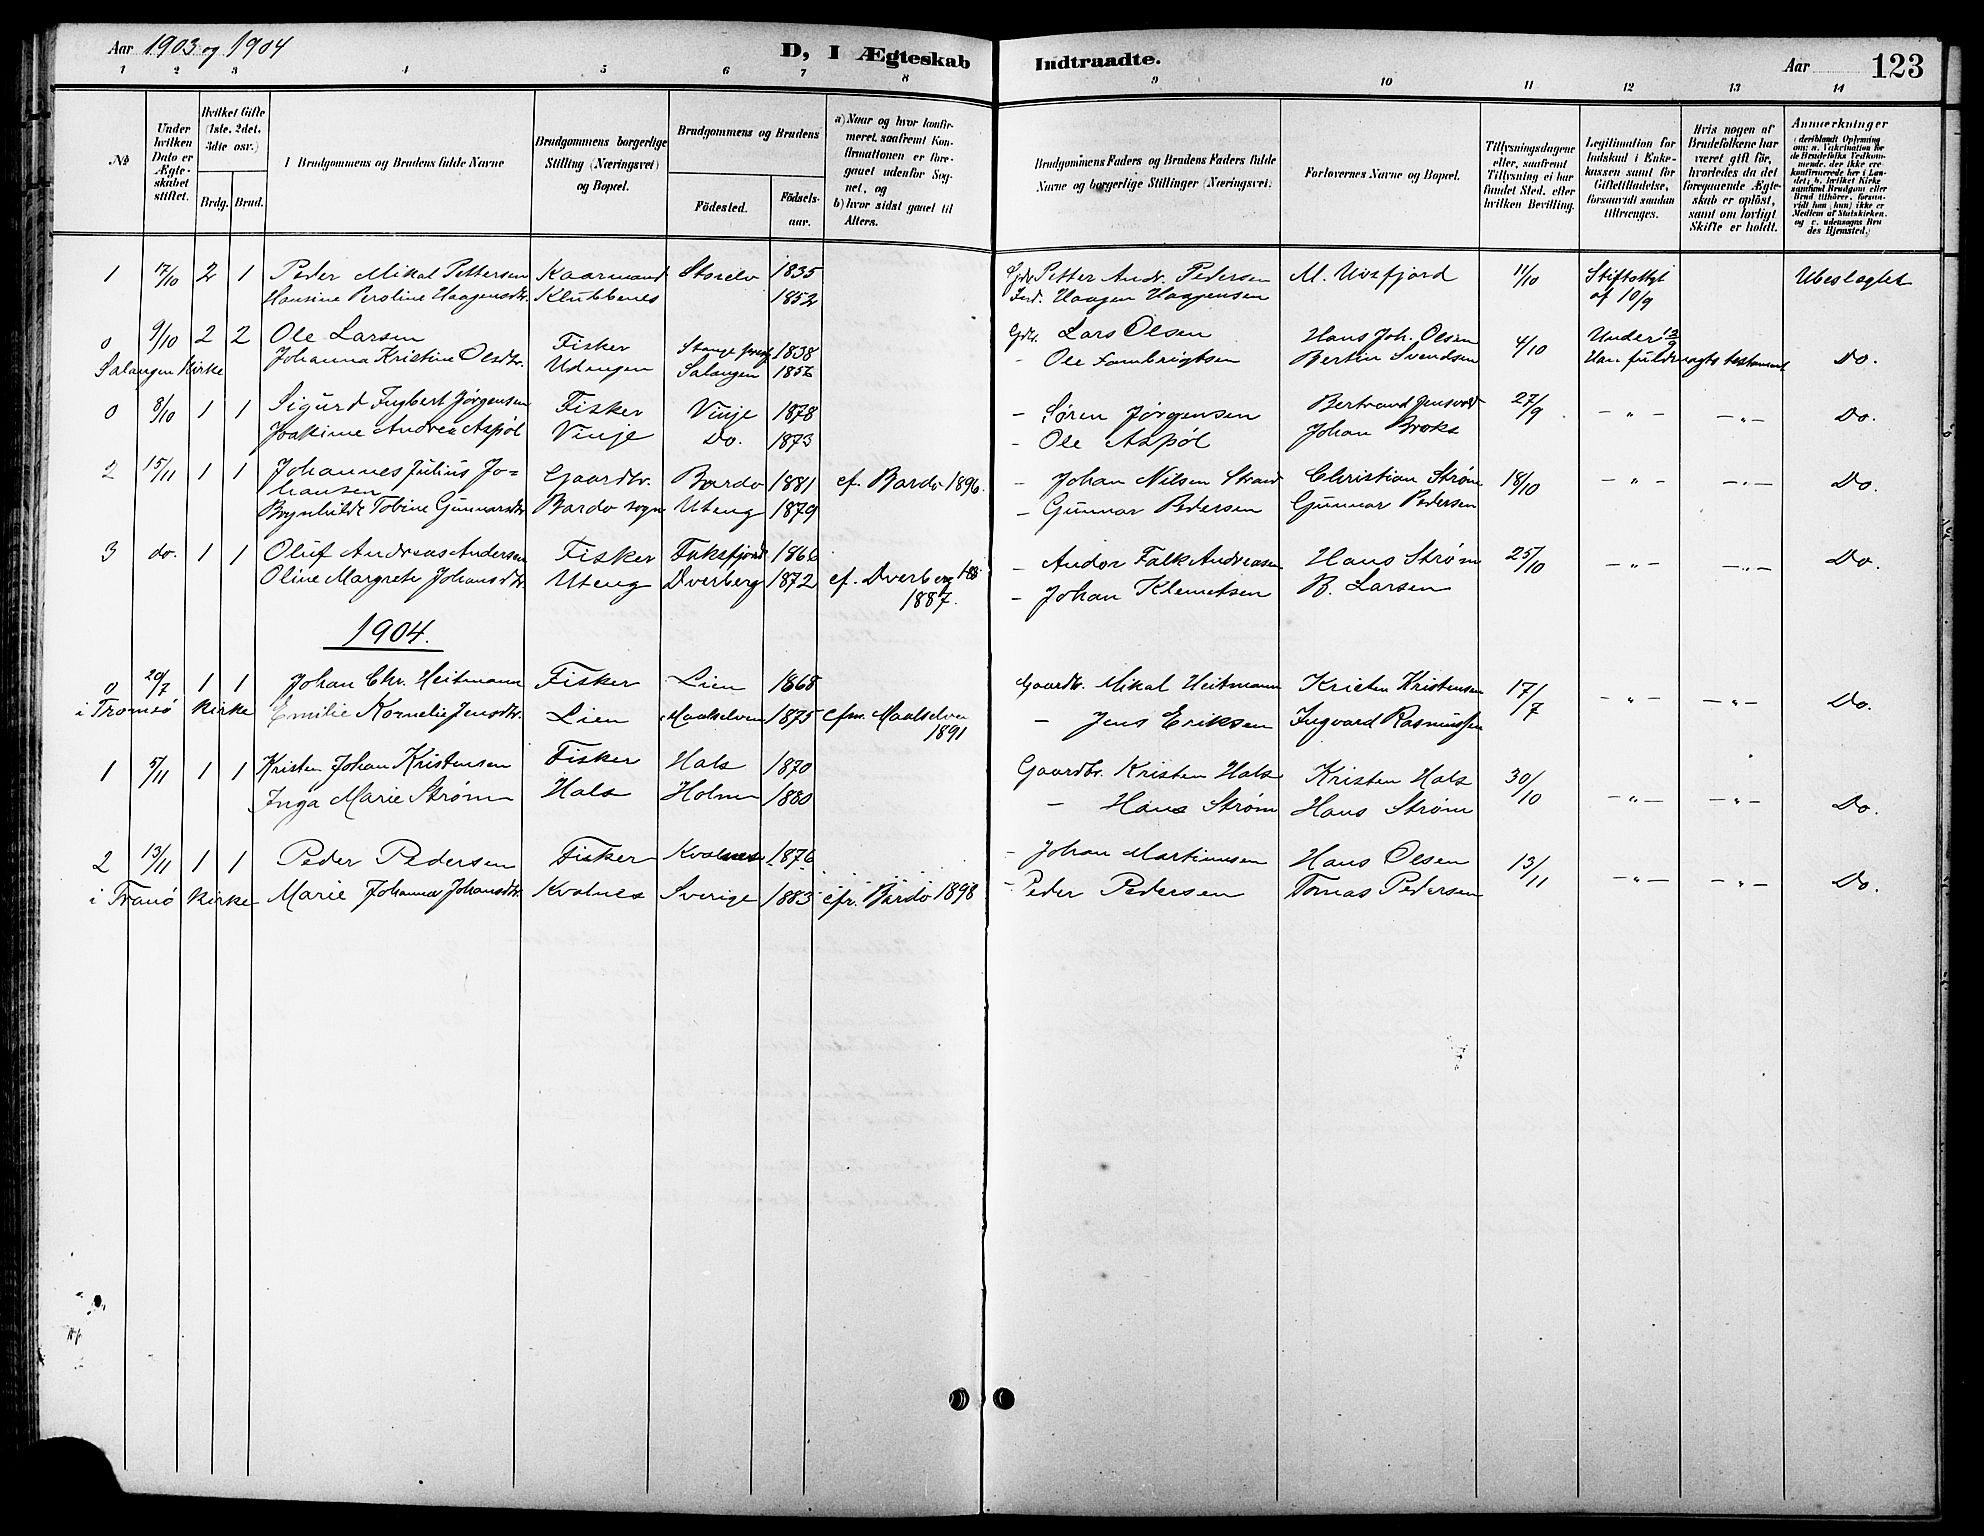 Aar 1903 og 1904 D, I Ægteskab Indtraadte. Aar 123
1 2 3 4 5 6 7 8 9 10 11 12 13 14
No
Under hvilken Dato er Ægteskabet stiftet.
Hvilket Gifte (1ste, 2det, 3die osv.)
Brdg. Brud.
Brudgommens og Brudens fulde Navne
Brudgommens borgerlige Stilling (Næringsvei) og Bopæl.
Brudgommens og Brudens
Fødested. Fødselsaar.
a) Naar og hvor konfirmeret, saafremt Konfirmationen er foregaaet udenfor Sognet, og
b) hvor sidst gaaet til Alters.
Brudgommens Faders og Brudens Faders fulde Navne og borgerlige Stillinger (Næringsvei)
Forlovernes Navne og Bopæl.
Tillysningsdagene eller, saafremt Tillysning ei har fundet Sted, efter hvilken Bevilling.
Legitimation for Indskud i Enkekassen samt for Giftetilladelse, forsaavidt saadan tiltrænges.
Hvis nogen af Brudefolkene har været gift før, hvorledes da det foregaaende Ægteskab er opløst, samt om lovligt Skifte er holdt.
Anmærkninger
1 17/10 2 1 Peder Mikal Pettersen Kaarmand Storelv 1835 Petter Andr. Pedersen 11/10 Ubeslægtet
Klubbenes 1852 Haagen Haagensen af 10/9
0 9/10 2 2 Ole Larsen Fisker 1838 Gdr. Lars Olsen Hans Joh. Olsen 4/10 Under 12/9
Salangen Kirke Johanna Kristine Olsdtr. Udengen Salangen 1856 - Ole Bertin Svendsen Do.
0 8/10 1 1 Sigurd Ingbert Jørgensen Fisker Vinje 1878 - Søren Jørgensen 27/9 - " - - " - Do.
Joakime Andrea Aspöl Vinje Do. 1873 - Ole Aspöl Johan Broks
2 15/11 1 1 Johannes Julius Jo=
hansen Gaardbr. Bardo 1881 cf. Bardo 1896. - Johan Nilsen Strand Christian Strøm 18/10 - " - - " - Do.
Brynhilde Tobine Gunnarsdtr. Bardo sogn Uteng 1879 - Gunnar Pedersen Gunnar Pedersen
3 do. 1 1 Oluf Andreas Andersen Fisker 1866 - Andor Falk Andreasen Hans Strøm 25/10 - " - - " - Do.
Oline Margrete Johansdtr. Uteng Dverberg 1872 cf. Dverberg
1887. - Johan Klemetsen B. Larsen
1904.
0 20/7 1 1 Johan Chr. Heitmann Fisker Lien 1868 Gaardbr. Mikal Heitmann Kristen Kristensen 17/7 - " - - " - Do.
i Tromsö Kirke Emilie Kornelie Jensdtr. Lien Maalselven 1875 cfm. Maalselven
1891 - Jens Eriksen Ingvard Rasmussen
1 5/11 1 1 Kristen Johan Kristensen Fisker Hals 1870 Gaardbr. Kristen Hals Kristen Hals 30/10 - " - - " - Do.
Inga Marie Strøm Hals Holmen 1880 - Hans Strøm Hans Strøm
2 13/11 1 1 Peder Pedersen Fisker Kvalnes 1876 - Johan Martinusen Hans Olsen 13/11 - " - - " - Do.
i Tranö Kirke Marie Johanna Johansdtr. Kvalnes Sverige 1883 cfr. Bardo 1898 - Peder Pedersen Tomas Pedersen